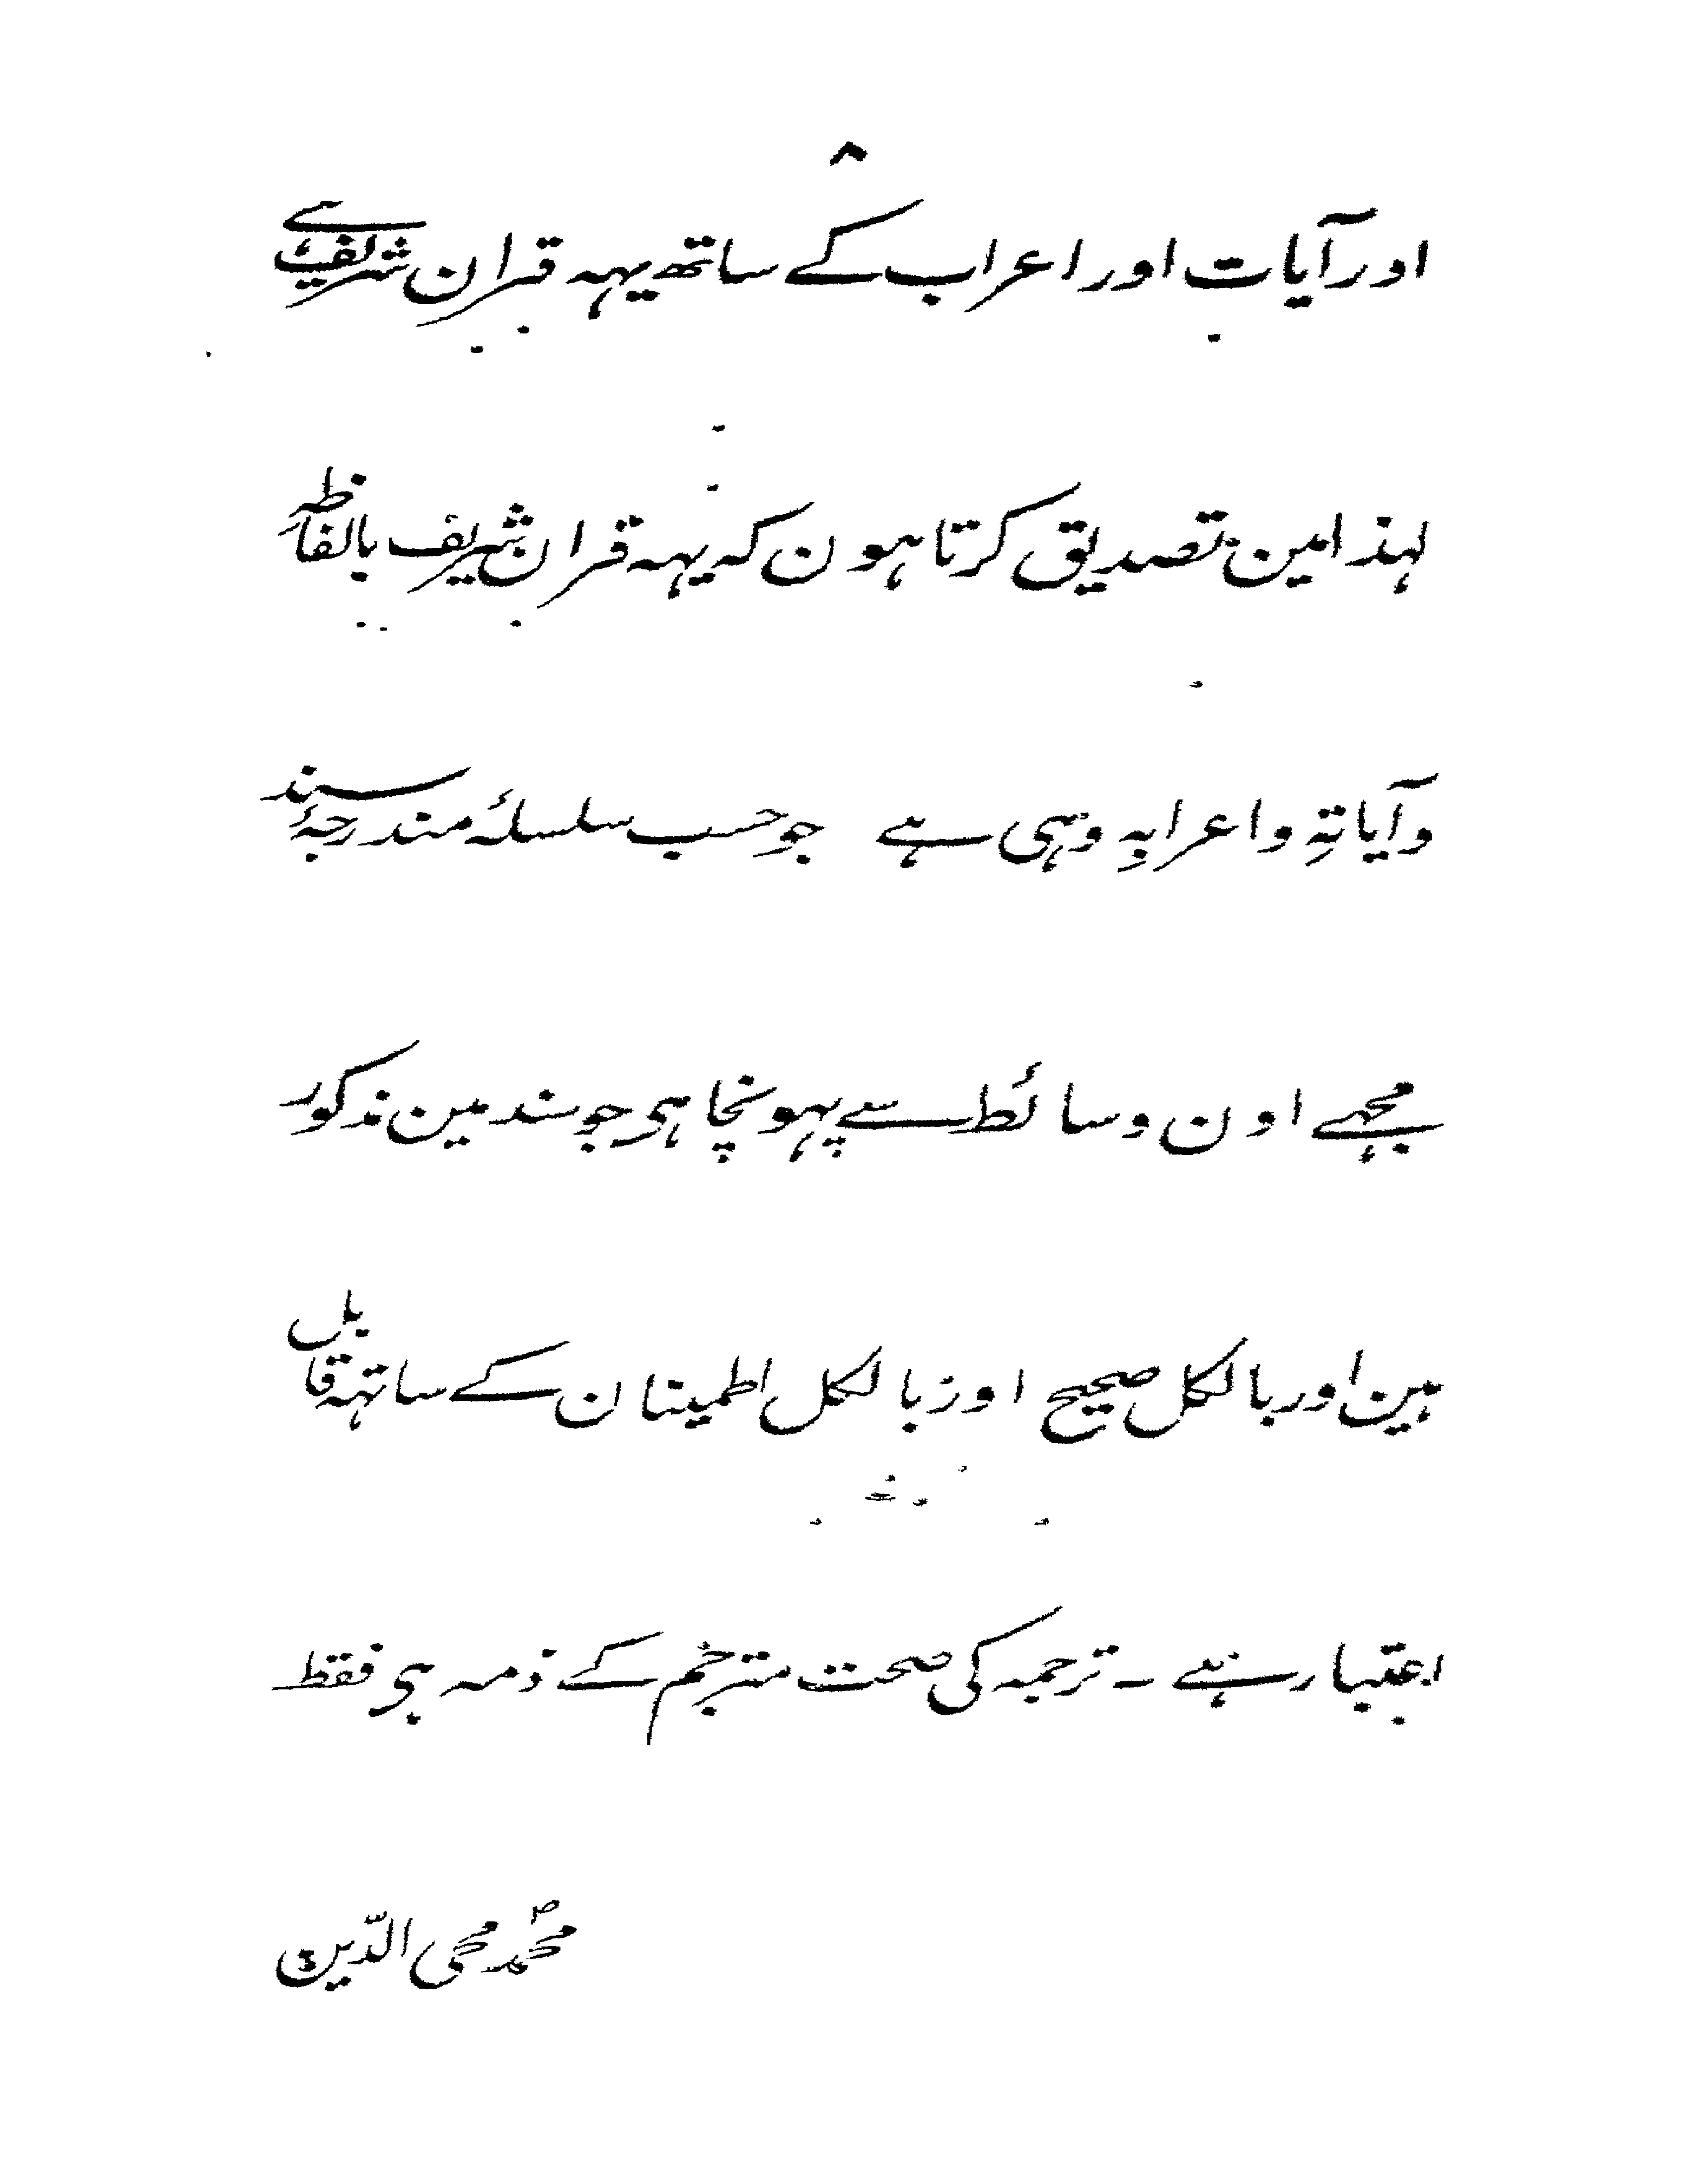 ۸
اور آیات اور اعراب کے ساتھ یہہ قران شریف ہے
لہذا مین تصدیق کرتا ہون کہ یہہ قران شریف بالفاظہِ
وآیاتہِ واعرابہِ وہی ہے جو حسب سلسلۂ مندرجۂ سند
مجہے اون وسائط سے پہونچا ہی جو سند مین مذکور
ہین اور بالکل صحیح اور بالکل اطمینان کے ساتہہ قابل
اعتبار ہے ۔ ترجمہ کی صحت مترجم کے ذمہ ہی فقط
محمدؐ محی الدّین